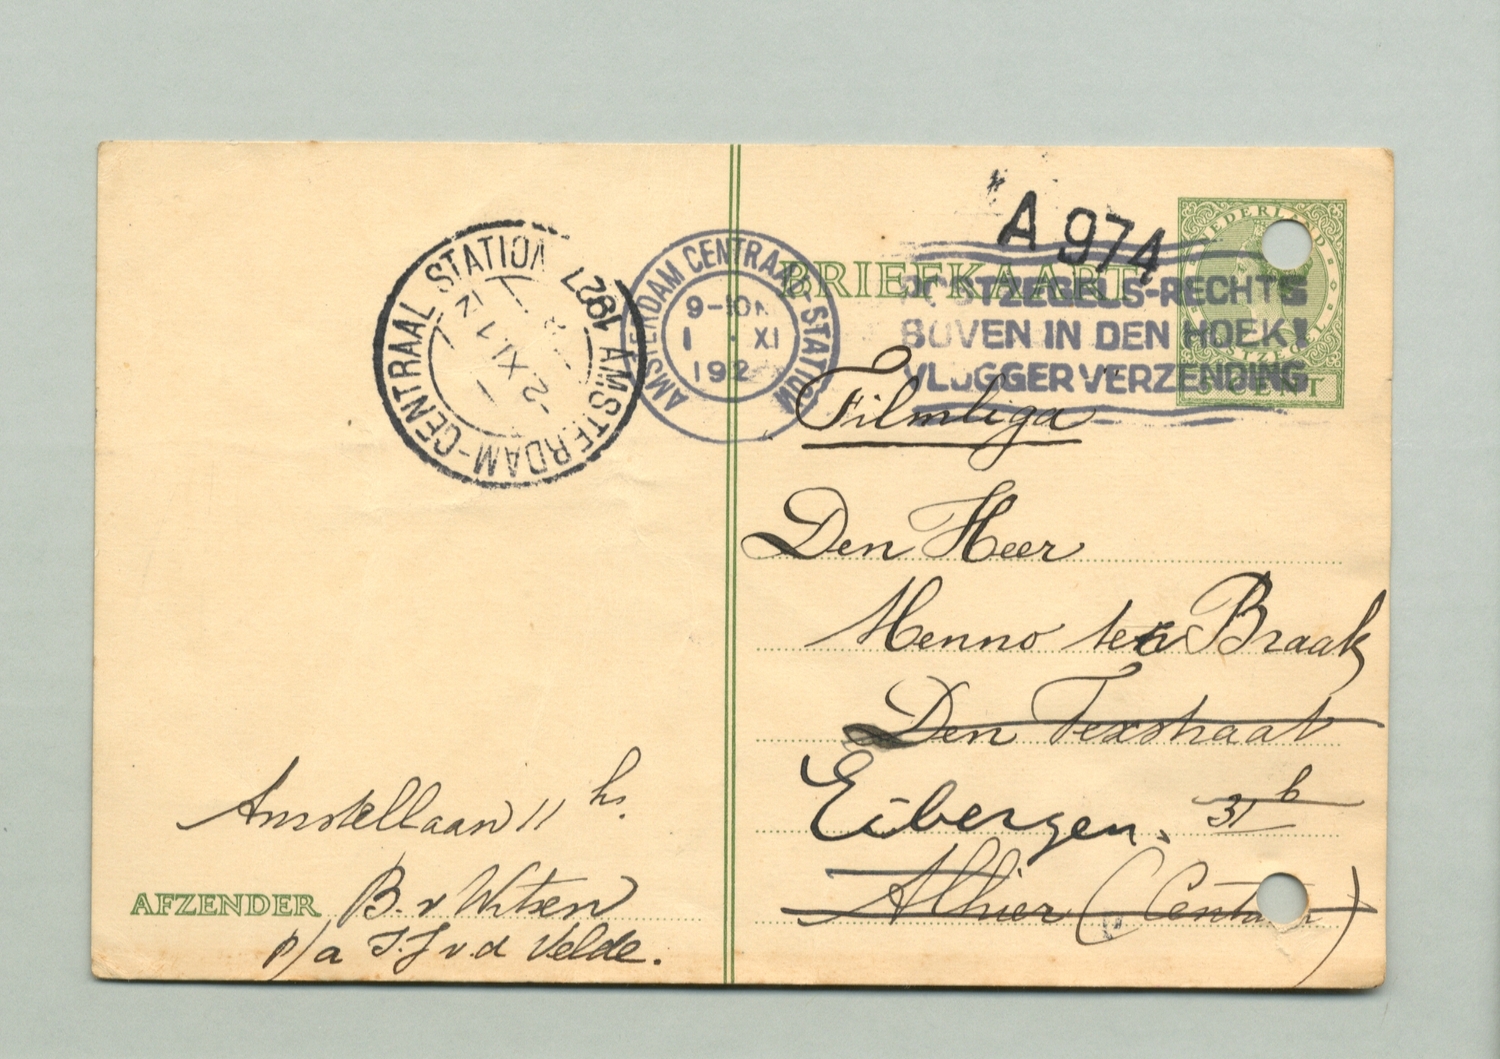 A 974
NEDERLAND
BRIEFKAART
POSTZEGELS-RECHTS
BOVEN IN DEN HOEK!
VLUGGER VERZENDING
CENT
AMSTERDAM CENTRAAL STATION
9-10
1 XI
192
AMSTERDAM-CENTRAAL STATION
12
-2 XI
1927
Filmliga
Den Heer
Menno ter Braak
Den Texstraat
31 b
Eibergen.
Alhier (Centrum)
Amstellaan 11 hs.
AFZENDER B. v Witsen
p/a J. J v. d Velde.